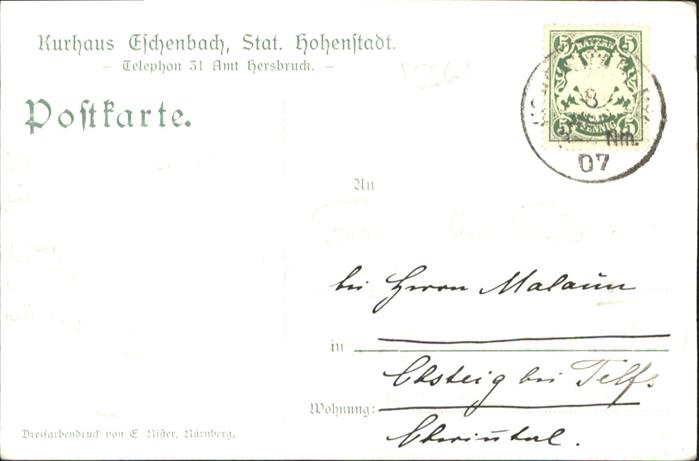 Kurhaus Eschenbach, Stat. Hohenstadt.
– Telephon 31 Amt Hersbruck. –
Postkarte.
BAYERN
5 5
8
5 PFENNIG 5
Nm.
07
An
bei Herrn Malaun
in
Obsteig bei Telfs
Wohnung:
Oberinntal.
Dreifarbendruck von E. Nister, Nürnberg.